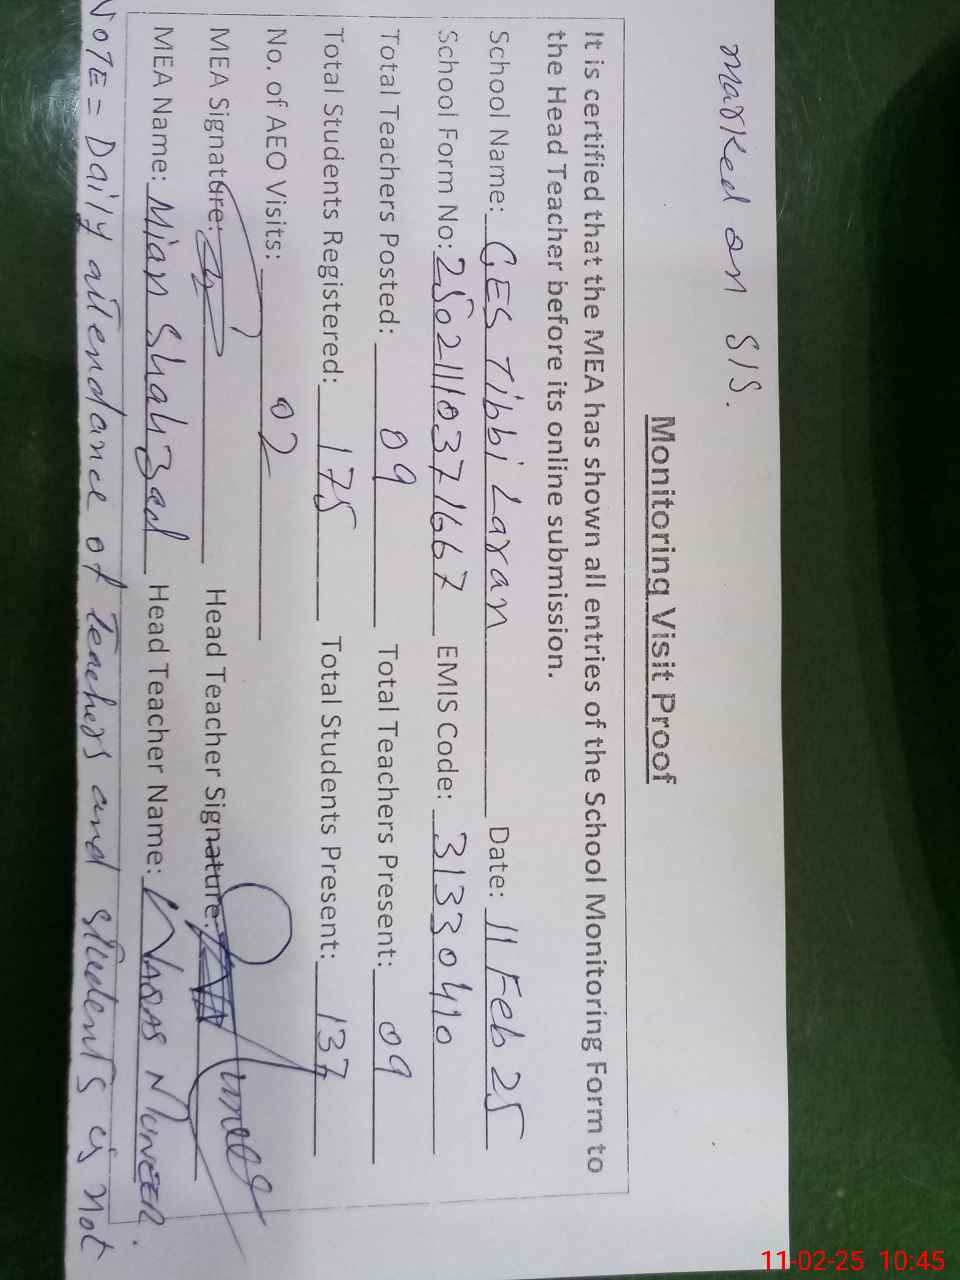 marked on SIS.
Monitoring Visit Proof
It is certified that the MEA has shown all entries of the School Monitoring Form to
the Head Teacher before its online submission.
School Name: GES Tibbi Laran Date: 11 Feb 25
School Form No: 25021110371667 EMIS Code: 31330410
Total Teachers Posted: 09 Total Teachers Present: 09
Total Students Registered: 175 Total Students Present: 137
No. of AEO Visits: 02
MEA Signature: Head Teacher Signature:
MEA Name: Mian Shahzad Head Teacher Name: Waqas Muneer.
NOTE = Daily attendance of Teachers and students is not
11-02-25 10:45